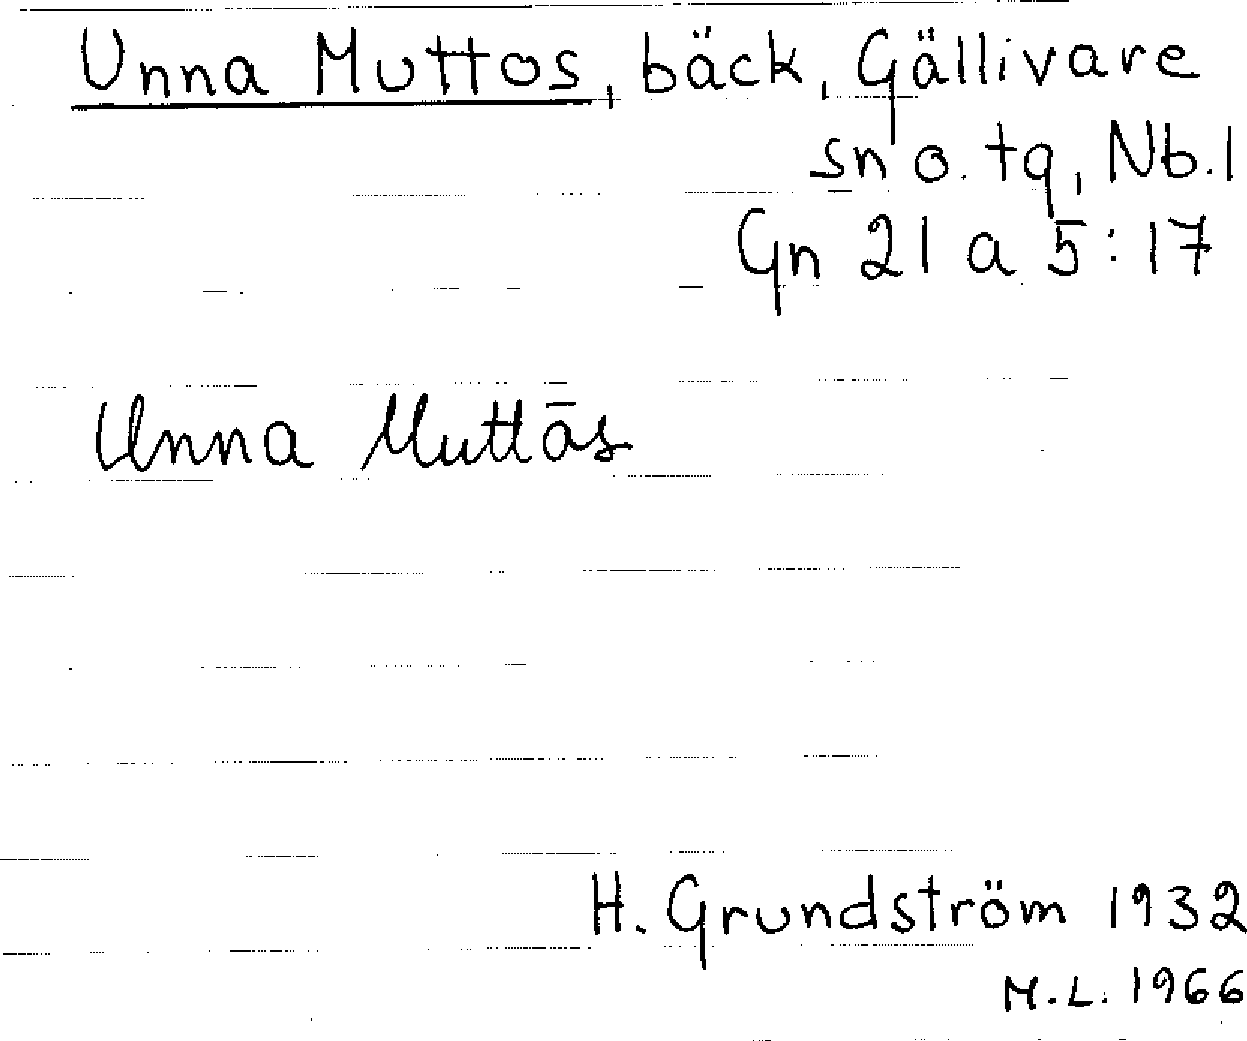 Unna Muttos, bäck, Gällivare
sn o. tg, Nb.l
Gn 21 a 5:17
Unna Muttās
H. Grundström 1932
M.L. 1966